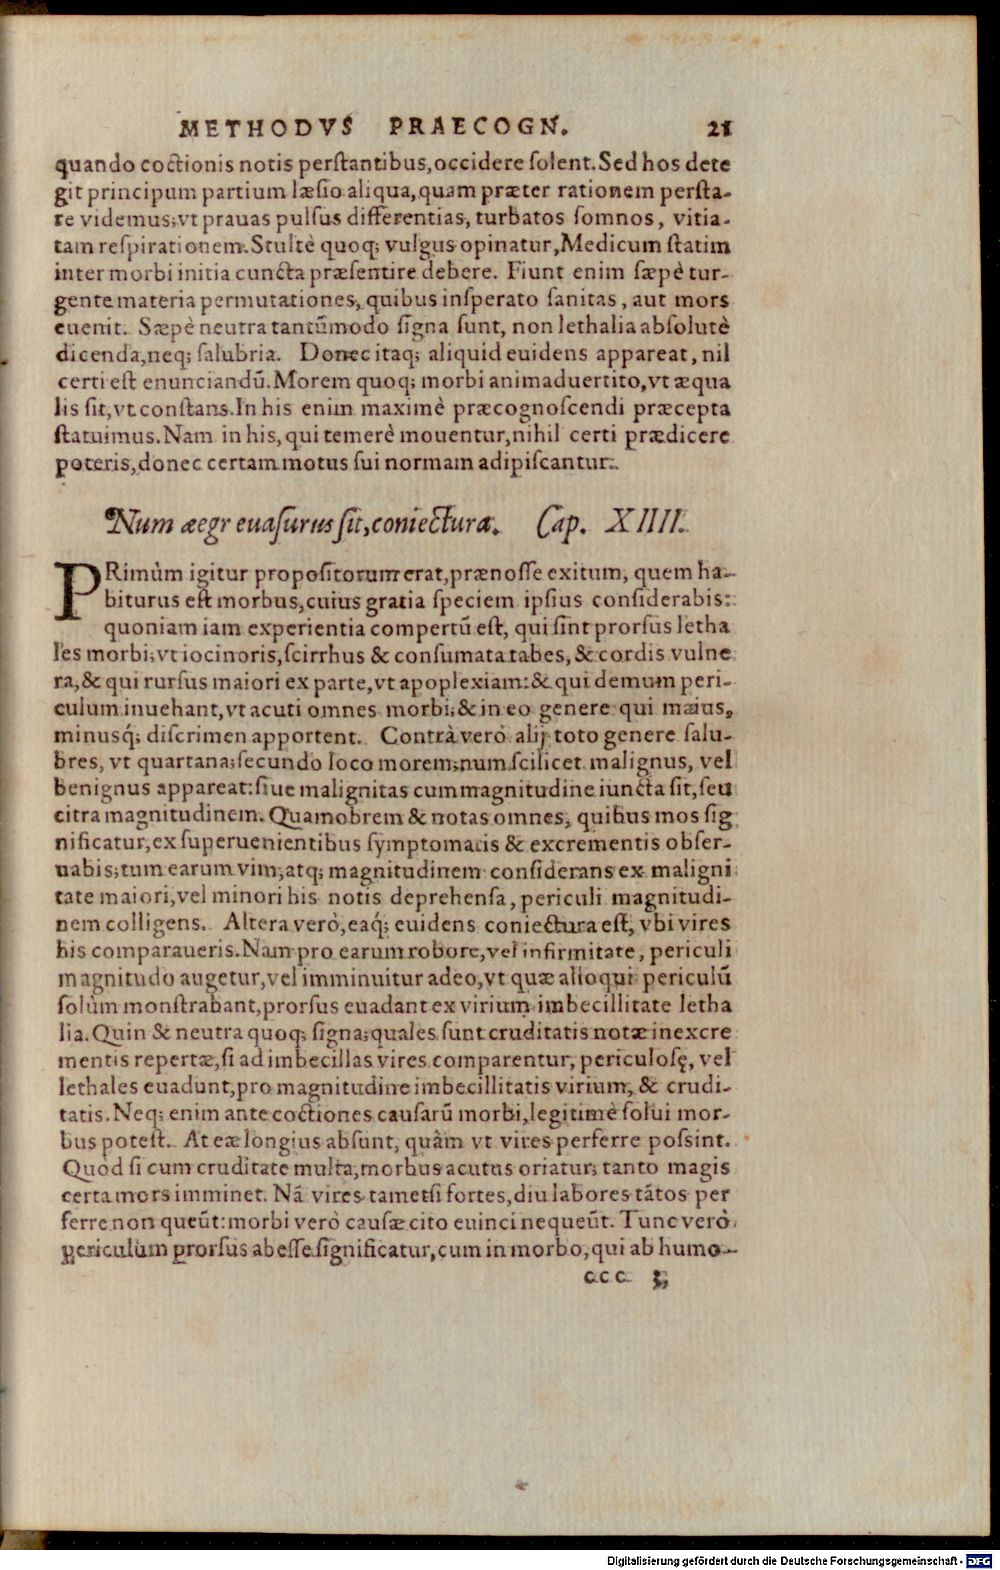 METHODVS PRAECOGN. 21
quando coctionis notis perstantibus, occidere solent. Sed hos dete
git principum partium læsio aliqua, quam præter rationem persta-
re videmus; vt prauas pulsus differentias, turbatos somnos, vitia-
tam respirationem. Stultè quoq; vulgus opinatur, Medicum statim
inter morbi initia cuncta præsentire debere. Fiunt enim sæpè tur-
gente materia permutationes, quibus insperato sanitas, aut mors
euenit. Sæpè neutra tantũmodo signa sunt, non lethalia absolutè
dicenda, neq; salubria. Donec itaq; aliquid euidens appareat, nil
certi est enunciandũ. Morem quoq; morbi animaduertito, vt æqua
lis sit, vt constans. In his enim maximè præcognoscendi præcepta
statuimus. Nam in his, qui temerè mouentur, nihil certi prædicere
poteris, donec certam motus sui normam adipiscantur.
Num aegr euasurus sit, coniectura. Cap. XIIII.
PRimùm igitur propositorum erat, prænosse exitum, quem ha-
biturus est morbus, cuius gratia speciem ipsius considerabis:
quoniam iam experientia compertũ est, qui sint prorsus letha
les morbi; vt iocinoris, scirrhus & consumata tabes, & cordis vulne
ra, & qui rursus maiori ex parte, vt apoplexiam: & qui demum peri-
culum inuehant, vt acuti omnes morbi; & in eo genere qui maius,
minusq́; discrimen apportent. Contrà verò alij toto genere salu-
bres, vt quartana; secundo loco morem; num scilicet malignus, vel
benignus appareat: siue malignitas cum magnitudine iuncta sit, seu
citra magnitudinem. Quamobrem & notas omnes, quibus mos sig
nificatur, ex superuenientibus symptomatis & excrementis obser-
uabis; tum earum vim, atq; magnitudinem considerans ex maligni
tate maiori, vel minori his notis deprehensa, periculi magnitudi-
nem colligens. Altera verò, eaq́; euidens coniectura est, vbi vires
his comparaueris. Nam pro earum robore, vel infirmitate, periculi
magnitudo augetur, vel imminuitur adeo, vt quæ alloqui periculũ
solùm monstrabant, prorsus euadant ex virium imbecillitate letha
lia. Quin & neutra quoq; signa; quales sunt cruditatis notæ in excre
mentis repertæ, si ad imbecillas vires comparentur, periculosę, vel
lethales euadunt, pro magnitudine imbecillitatis virium, & crudi-
tatis. Neq; enim ante coctiones causarũ morbi, legitimè solui mor-
bus potest. At eæ longius absunt, quàm vt vires perferre possint.
Quòd si cum cruditate multa, morbus acutus oriatur; tanto magis
certa mors imminet. Nã vires tametsi fortes, diu labores tãtos per
ferre non queũt: morbi verò causæ cito euinci nequeũt. Tunc verò
periculum prorsus abesse significatur, cum in morbo, qui ab humo-
ccc